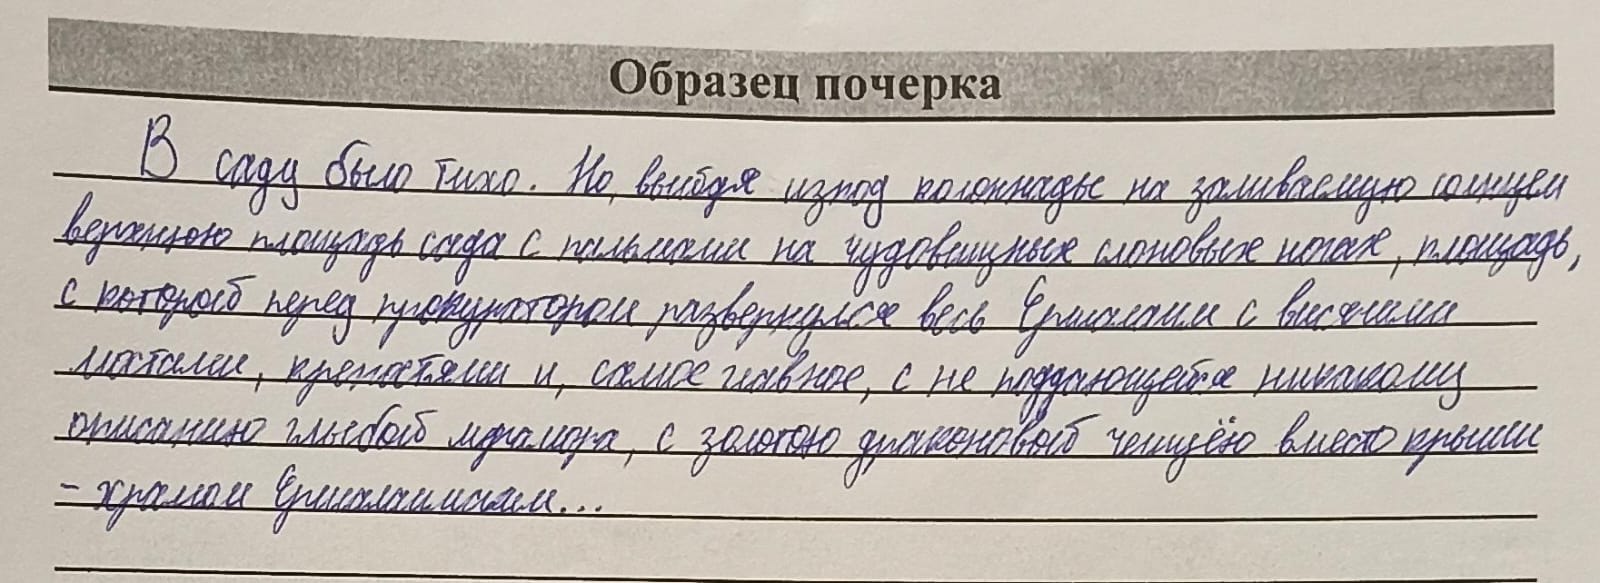 Образец почерка
В саду было тихо. Но, выйдя из под колоннады на заливаемую солнцем
верхнюю площадь сада с пальмами на чудовищных слоновых ногах, площадь,
с которой перед прокуратором развернулся весь Ершалаим с висячими
мостами, крепостями и, самое главное, с не поддающейся никакому
описанию глыбой мрамора, с золотою драконовой чешуёю вместо крыши
- храмом Ершалаимским...